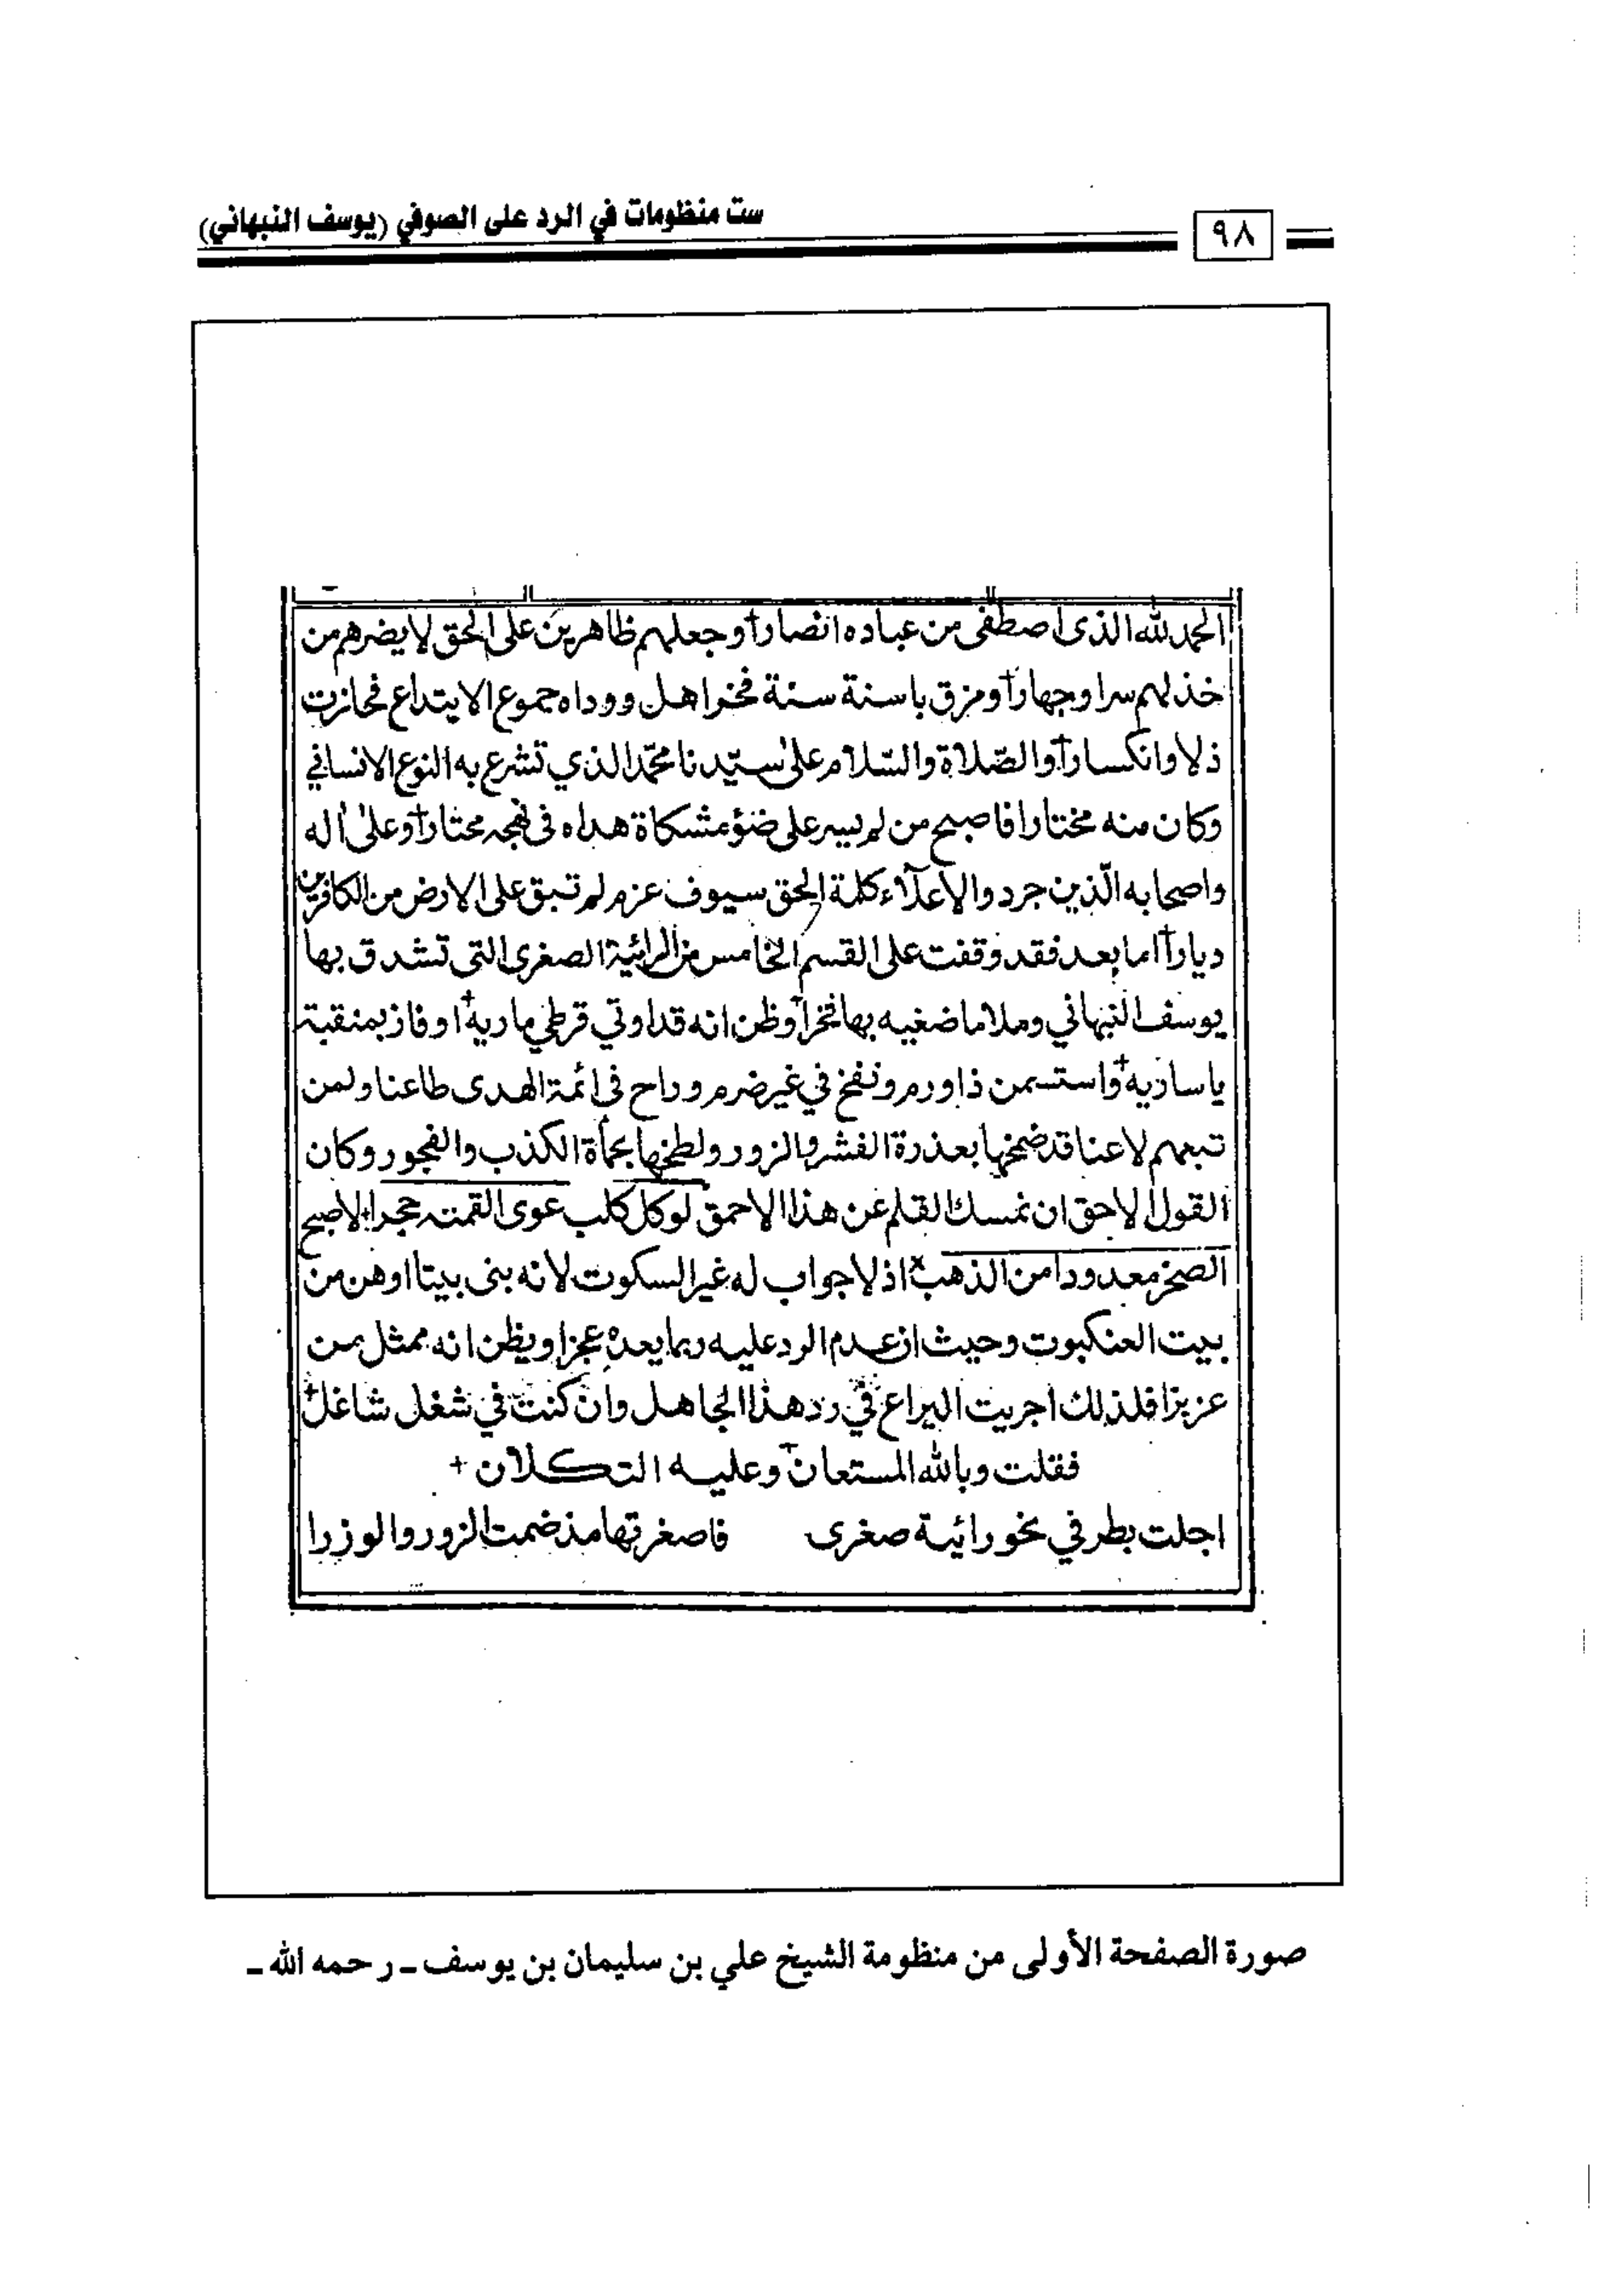 ست منظومات في الرد على الصوفي (يوسف النبهاني)
٩٨
الحمد لله الذى اصطفى من عباده انصارا وجعلهم ظاهرين على الحق لا يضرهم من
خذلهم سرا وجهارا ومزق باسنة سنة فخر اهل ووداه جموع الابتداع فحازت
ذلا وانكسارا والصّلاة والسّلام على سيّدنا محمّد الذي تشرع به النوع الانساني
وكان منه مختارا فاصبح من لم يسر على ضؤ مشكاة هداه فى نهجه محتارا وعلى أله
واصحابه الّذين جردوا لإعلآء كلمة الحق سيوف عزم لم تبق على الارض من الكافرين
ديارا اما بعد فقد وقفت على القسم الخامس من الرائية الصغرى التى تشدق بها
يوسف النبهاني وملا ماضغيه بها فخرا وظن انه قد اوتي قرطي مارية او فاز بمنقبة
يا سارية واستسمن ذا ورم ونفخ في غير ضرم وراح فى ائمة الهدى طاعنا ولمن
تبعهم لاعنا قد ضمخها بعذرة الفشر والزور ولطخها بحمأة الكذب والفجور وكان
القول الاحق ان نمسك القلم عن هذا الاحمق لو كل كلب عوى القمته حجرا + لاصبح
الصخر معدودا من الذهب اذ لا جواب له غير السكوت لانه بنى بيتا اوهن من
بيت العنكبوت وحيث ان عدم الرد عليه ربما يعده عجزا ويظن انه ممثل بمن
عزبزا فلذلك اجريت اليراع في رد هذا الجاهل وان كنت في شغل شاغل +
فقلت وبالله المستعان وعليه التكلان +
اجلت بطرفي نحو رائية صغرى فاصغرتها مذ ضمت الزور والوزرا
صورة الصفحة الأولى من منظومة الشيخ علي بن سليمان بن يوسف ـ رحمه الله ـ